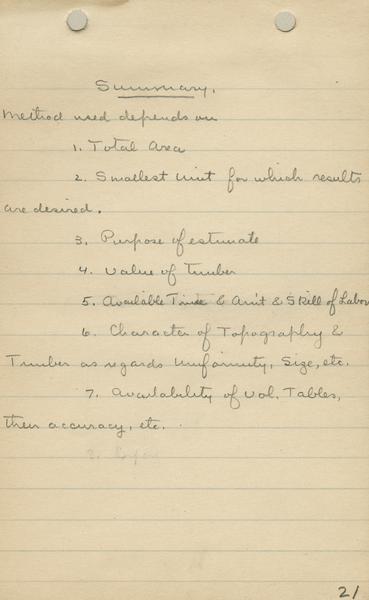 Summary.
Method used depends on
1. Total Area
2. Smallest unit for which results
are desired.
3. Purpose of estimate
4. Value of Timber
5. Available Time & Am't & Skill of Labor
6. Character of Topography &
Timber as regards Uniformity, Size, etc.
7. Availability of Vol. Tables,
their accuracy, etc.
21